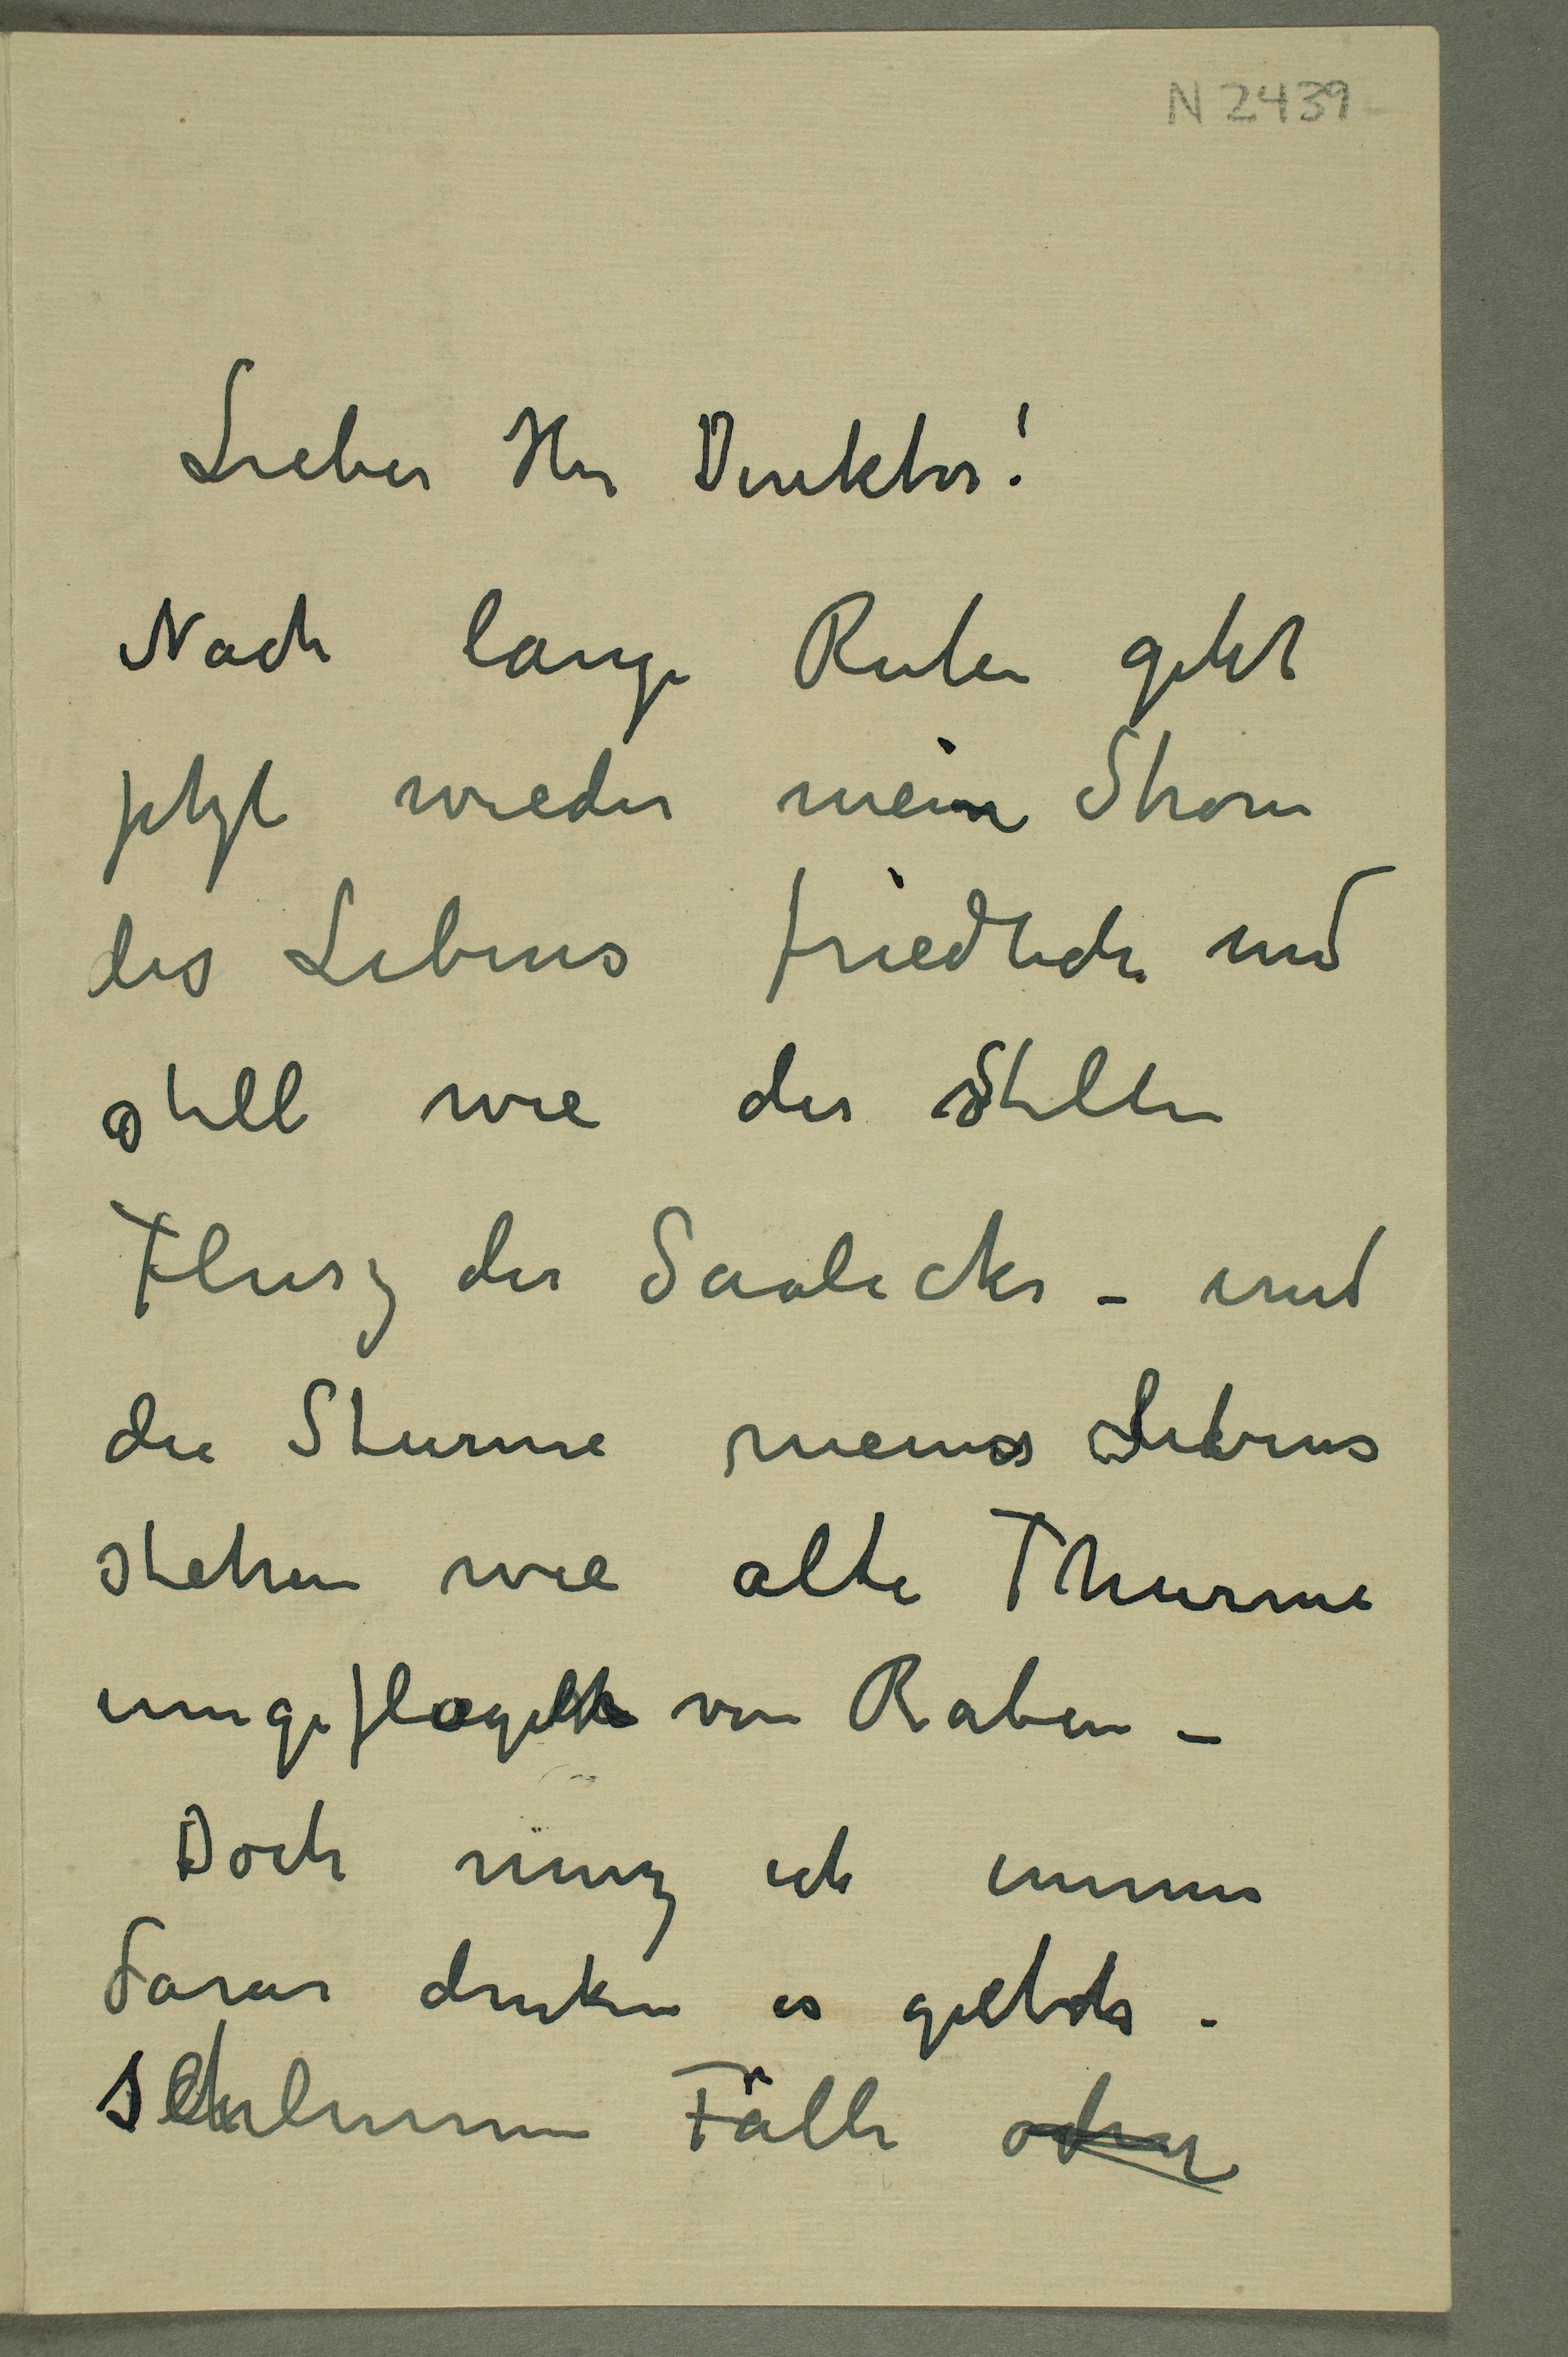 N 2439
Lieber Herr Direktor!
Nach lange Ruhen geht
jetzt wieder mein Strom
des Lebens friedlich und
still wie der stillen
Flusz der Saaleck – und
die Sturme meines Lebens
stehen wie alte Thurme
umgeflogelt von Raben –
Doch musz ich immer
daran denken es giebt
schlimme Fälle oder